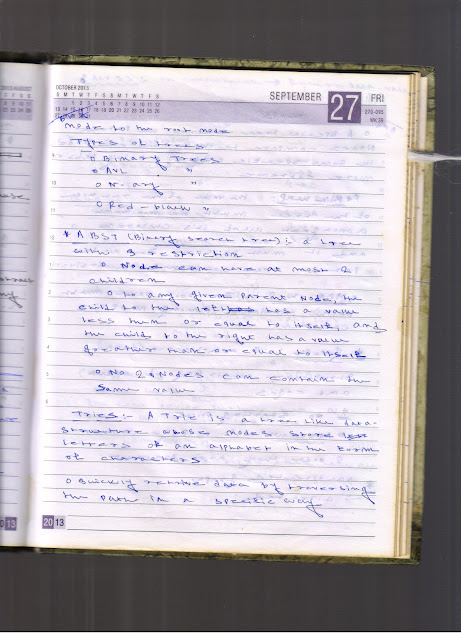 OCTOBER 2013
S M T W T F S S M T W T F S
SEPTEMBER 27 FRI
270-095
WK 39
node to the root node
Types of trees
o Binary Trees
o AVL "
o N-ary "
o Red-black "
* A BST (Binary search tree) is a tree
with 3 restriction
o Node can have at most 2
children
o to any given parent node, the
child to the left has a value
less than or equal to itself, and
the child to the right has a value
greather than or equal to itself
o No 2 Nodes can contain the
same value
Tries:- A Trie is a tree like data-
structure whose nodes store
letters of an alphabet in the form
of characters
o Quickly retrive data by traversing
the path in a specific way
20 13